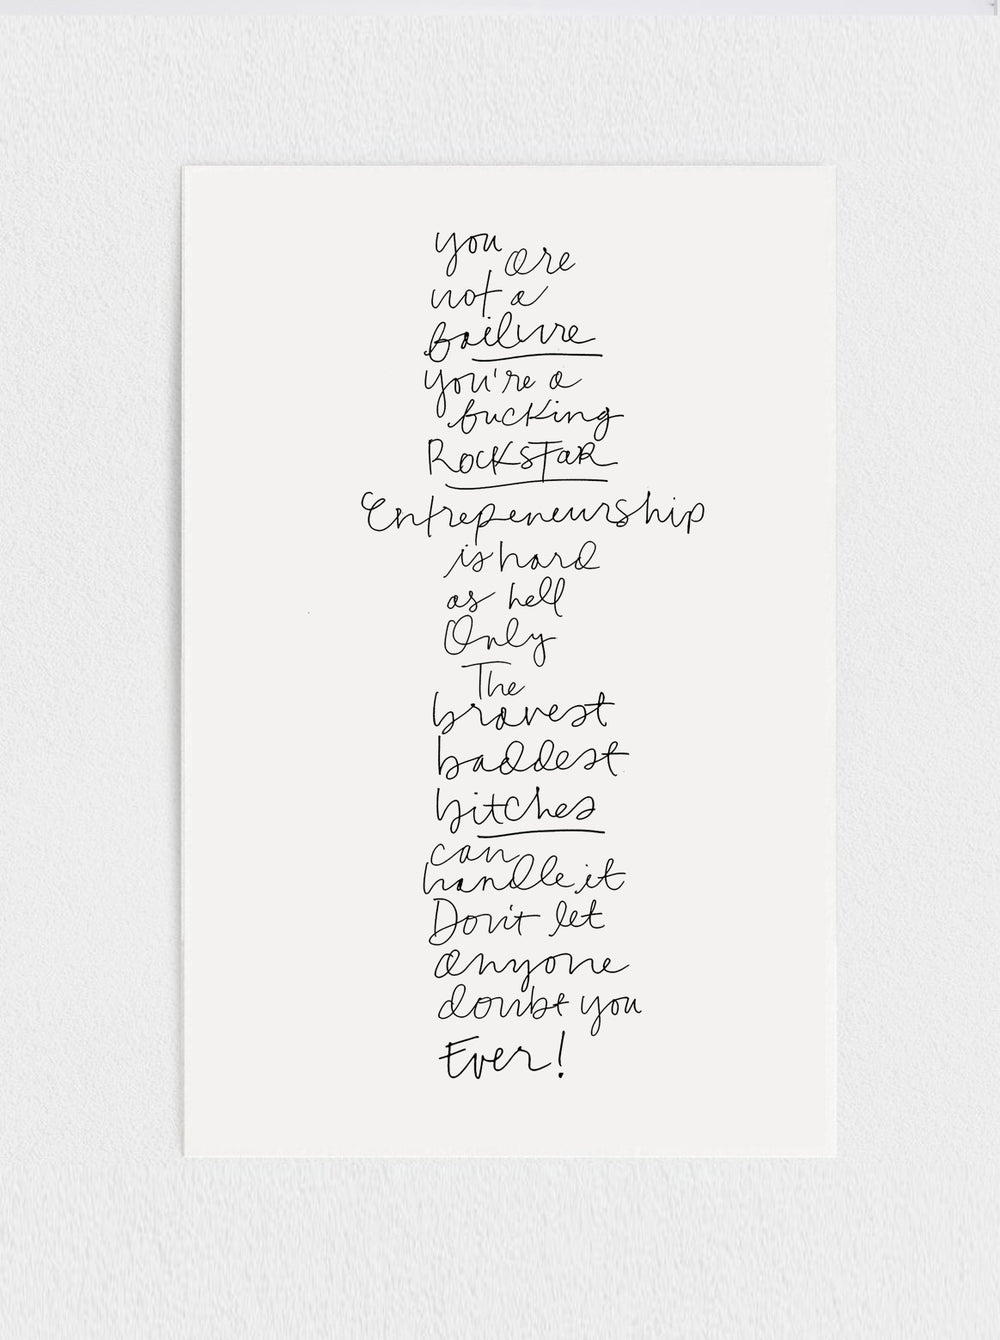 you are
not a
failure
you're a
fucking
ROCKSTAR
Entrepeneurship
is hard
as hell
Only
The
bravest
baddest
bitches
can
handle it
Don't let
anyone
doubt you
Ever!